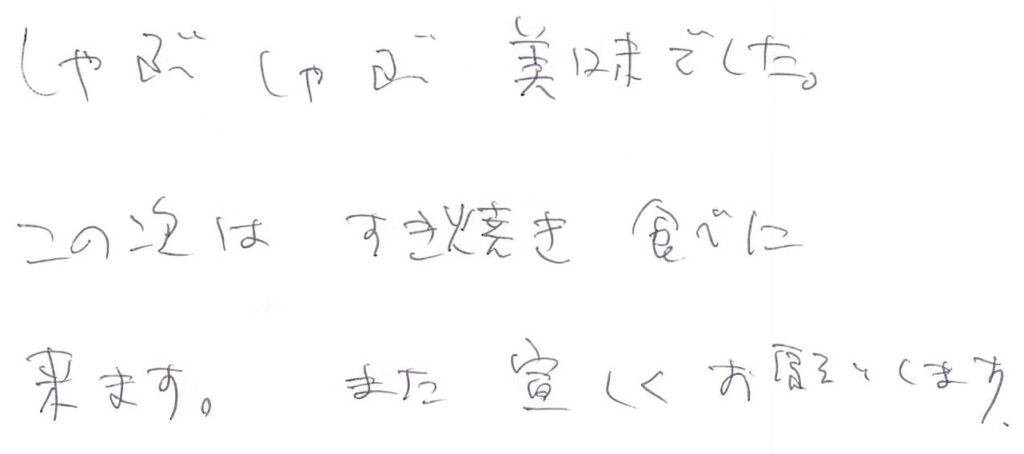 しゃぶ しゃぶ 美味でした。
この次は すき焼き 食べに
来ます。 また 宜しく お願いします.